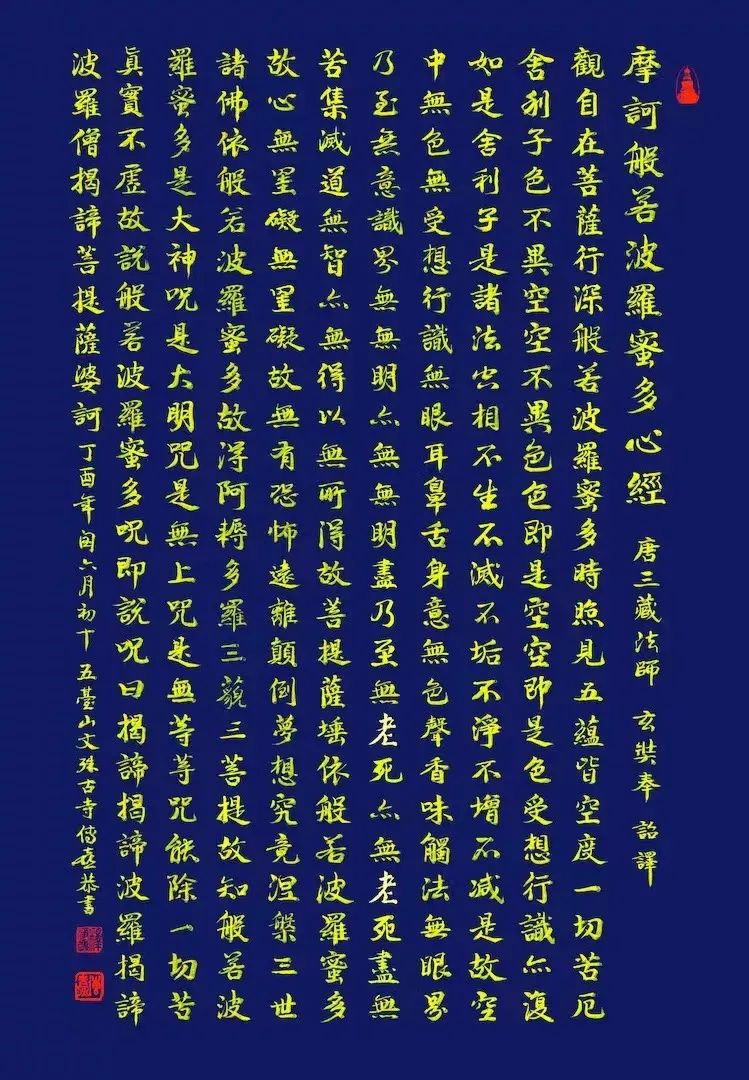 摩訶般若波羅蜜多心經 唐三藏法師 玄奘奉 詔譯
觀自在菩薩行深般若波羅蜜多時照見五蘊皆空度一切苦厄
舍利子色不異空空不異色色即是空空即是色受想行識亦復
如是舍利子是諸法空相不生不滅不垢不淨不增不減是故空
中無色無受想行識無眼耳鼻舌身意無色聲香味觸法無眼界
乃至無意識界無無明亦無無明盡乃至無老死亦無老死盡無
苦集滅道無智亦無得以無所得故菩提薩埵依般若波羅蜜多
故心無罣礙無罣礙故無有恐怖遠離顛倒夢想究竟涅槃三世
諸佛依般若波羅蜜多故得阿耨多羅三藐三菩提故知般若波
羅蜜多是大神咒是大明咒是無上咒是無等等咒能除一切苦
眞實不虛故說般若波羅蜜多咒即說咒曰揭諦揭諦波羅揭諦
波羅僧揭諦菩提薩婆訶 丁酉年闰六月初十 五臺山文殊古寺傳恭書